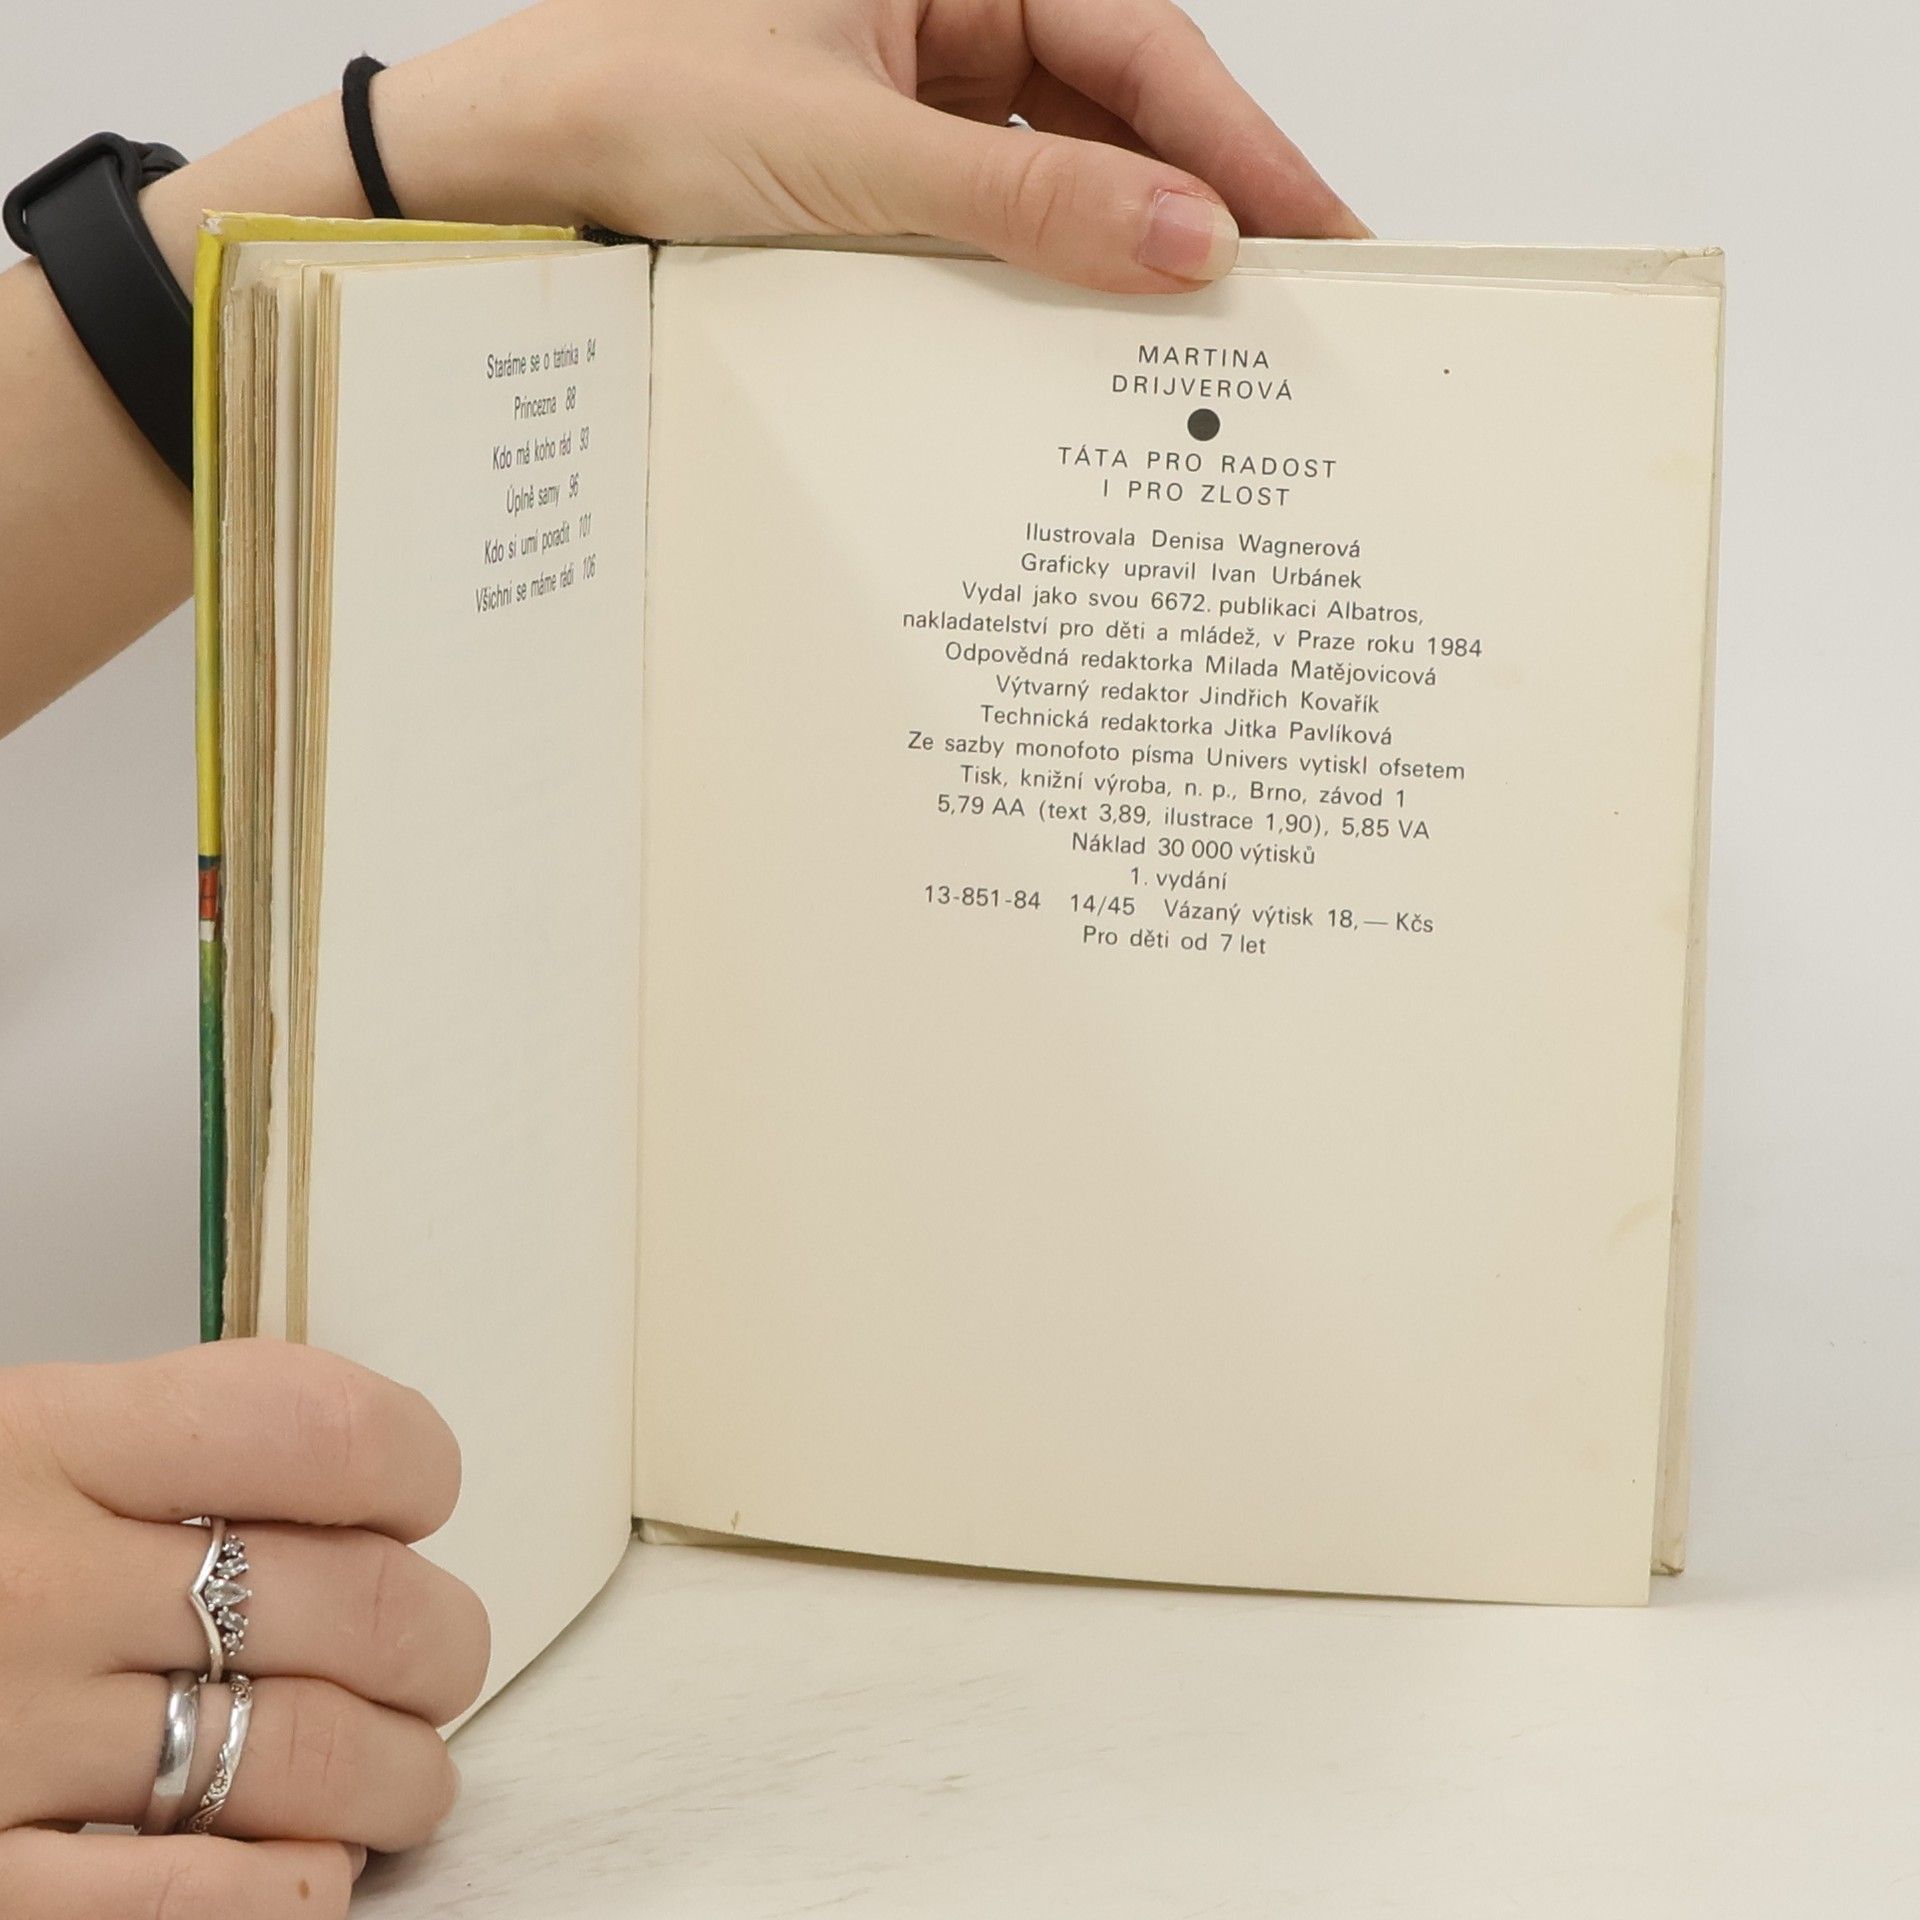 Staráme se o tatínka 84
Princezna 88
Kdo má koho rád 93
Úplně samy 96
Kdo si umí poradit 101
Všichni se máme rádi 106
MARTINA
DRIJVEROVÁ
TÁTA PRO RADOST
I PRO ZLOST
Ilustrovala Denisa Wagnerová
Graficky upravil Ivan Urbánek
Vydal jako svou 6672. publikaci Albatros,
nakladatelství pro děti a mládež, v Praze roku 1984
Odpovědná redaktorka Milada Matějovicová
Výtvarný redaktor Jindřich Kovařík
Technická redaktorka Jitka Pavlíková
Ze sazby monofoto písma Univers vytiskl ofsetem
Tisk, knižní výroba, n. p., Brno, závod 1
5,79 AA (text 3,89, ilustrace 1,90), 5,85 VA
Náklad 30 000 výtisků
1. vydání
13-851-84 14/45 Vázaný výtisk 18,— Kčs
Pro děti od 7 let